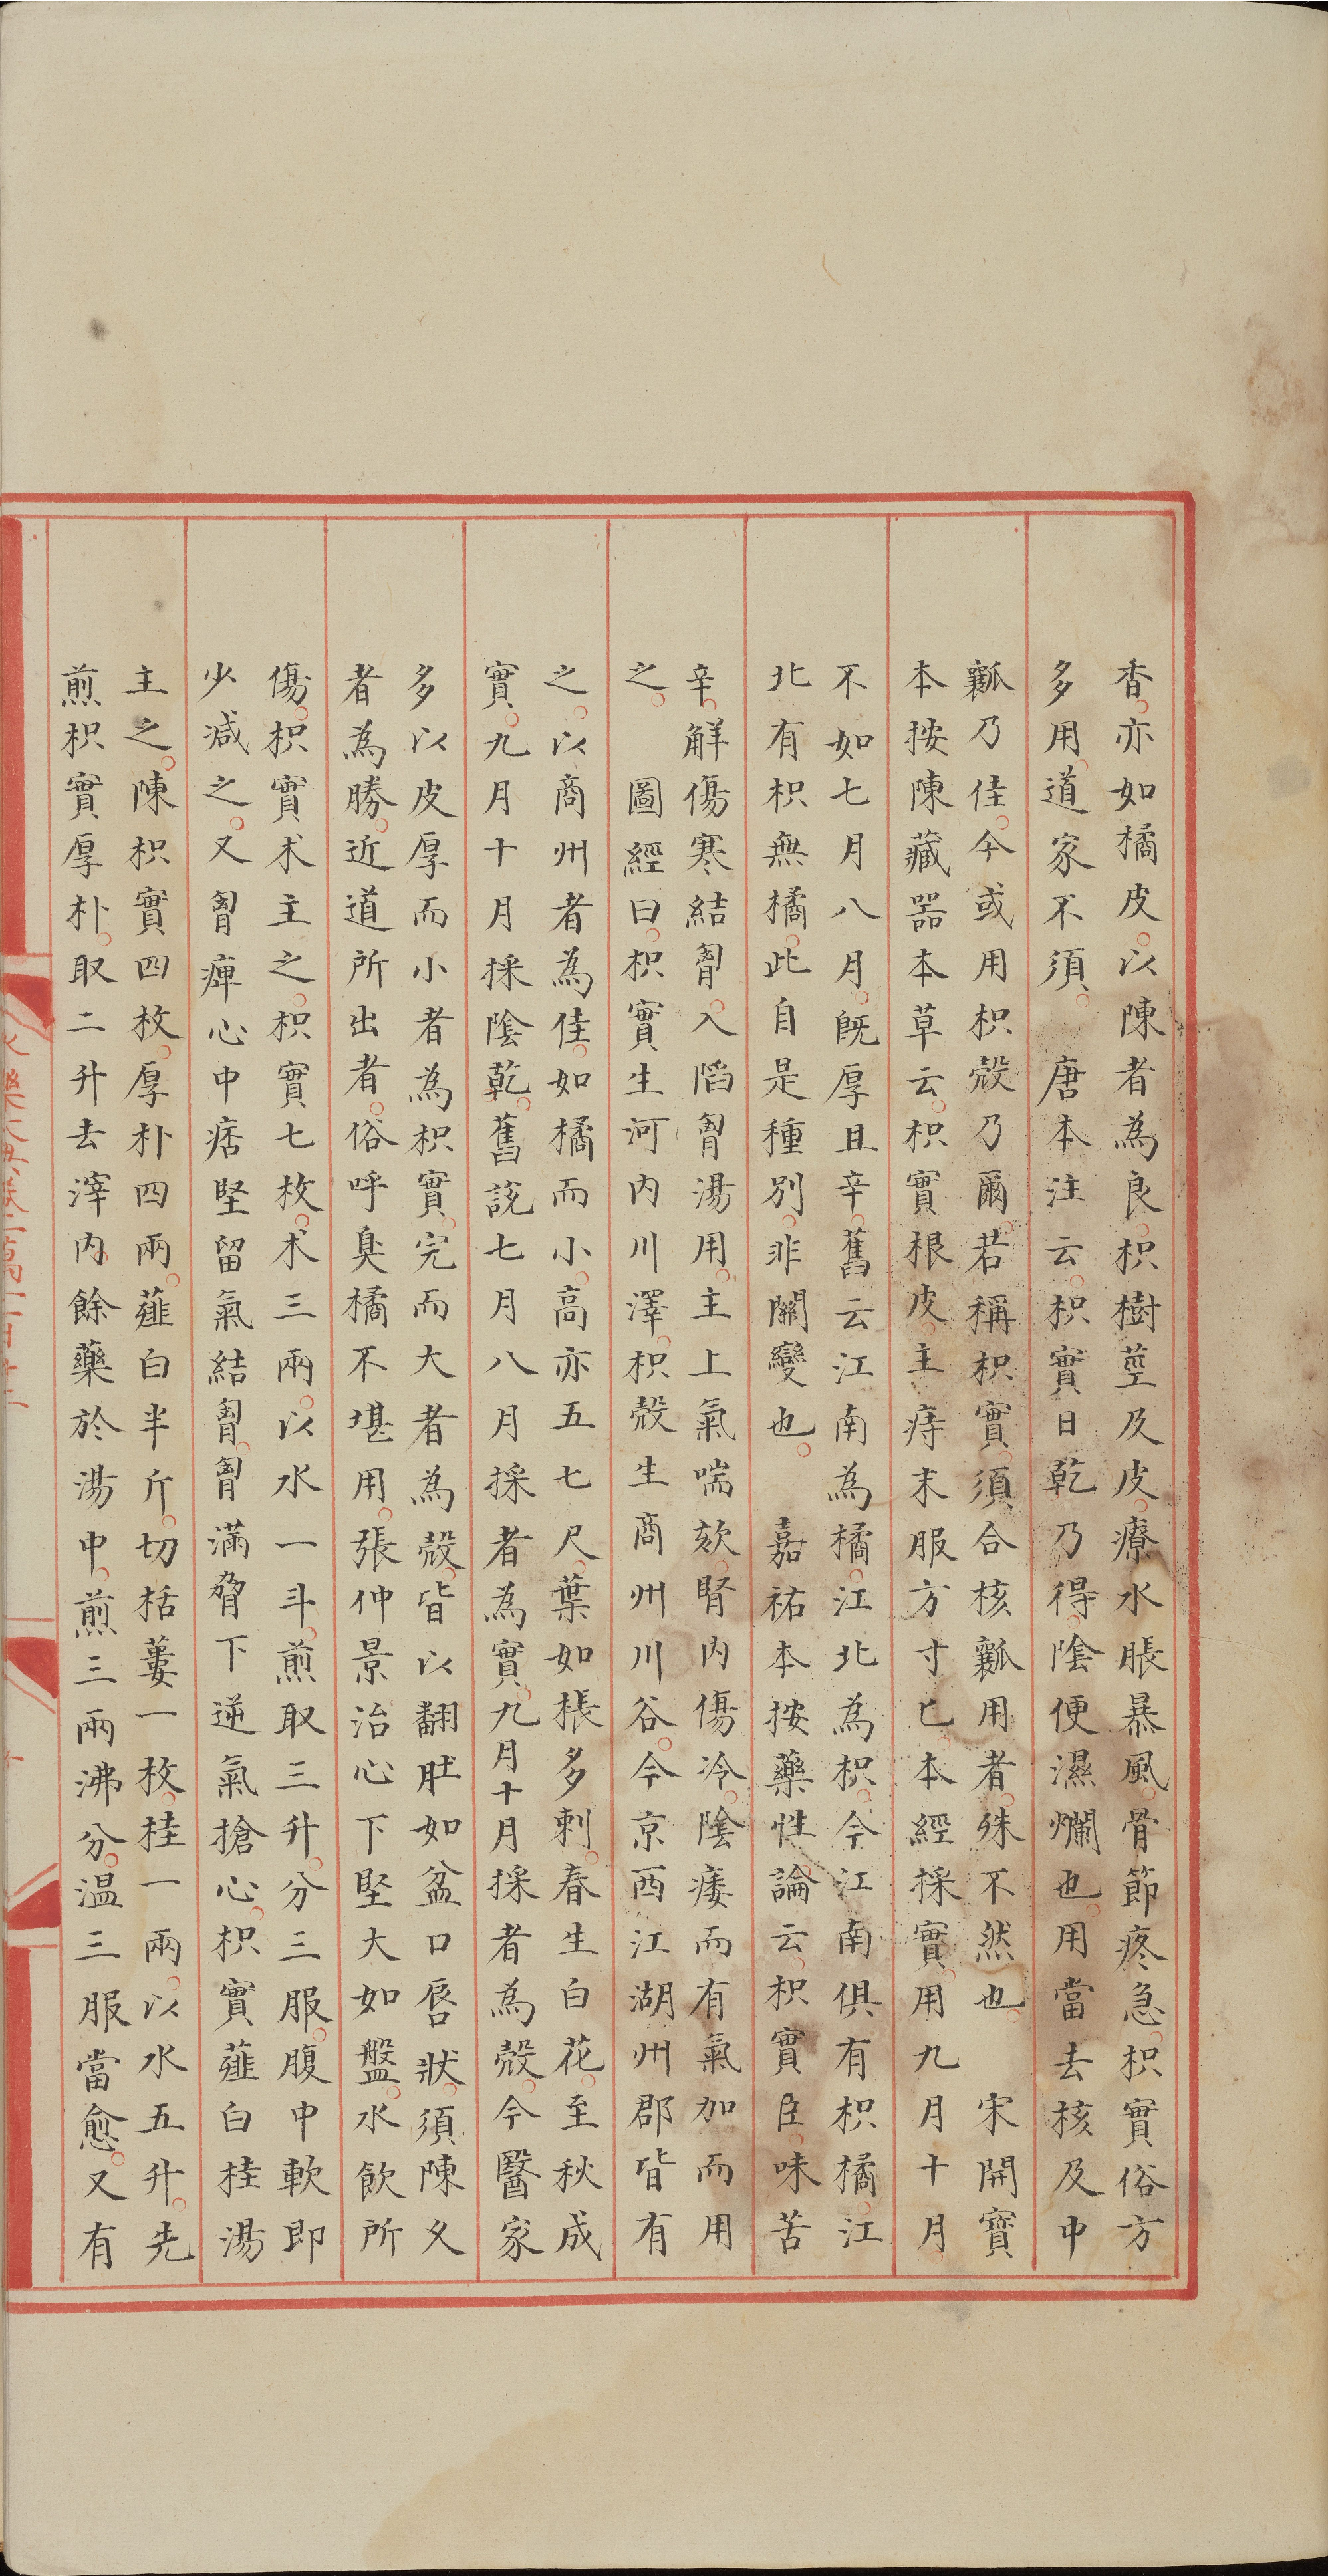 香亦如橘皮以陳者為良枳樹莖及皮療水脹暴風骨節疼急枳實俗方
多用道家不須 唐本注云枳實日乾乃得陰便濕爛也用當去核及中
瓤乃佳今或用枳殼乃爾若稱枳實須合核瓤用者殊不然也 宋開寶
本按陳藏器本草云枳實根皮主痔末服方寸匕本經採實用九月十月
不如七月八月旣厚且辛舊云江南為橘江北為枳今江南俱有枳橘江
北有枳無橘此自是種別非關變也 嘉祐本按藥性論云枳實臣味苦
辛解傷寒結胷入陷胷湯用主上氣喘欬腎內傷冷陰痿而有氣加而用
之 圖經曰枳實生河內川澤枳殼生商州川谷今京西江湖州郡皆有
之以商州者為佳如橘而小高亦五七尺葉如棖多刺春生白花至秋成
實九月十月採陰乾舊說七月八月採者為實九月十月採者為殼今醫家
多以皮厚而小者為枳實完而大者為殼皆以翻肚如盆口唇狀須陳久
者為勝近道所出者俗呼臭橘不堪用張仲景治心下堅大如盤水飲所
傷枳實朮主之枳實七枚朮三兩以水一斗煎取三升分三服腹中軟即
少減之又胷痺心中痞堅留氣結胷胷滿脅下逆氣搶心枳實薤白桂湯
主之陳枳實四枚厚朴四兩薤白半斤切栝蔞一枚桂一兩以水五升先
煎枳實厚朴取二升去滓內餘藥於湯中煎三兩沸分溫三服當愈又有